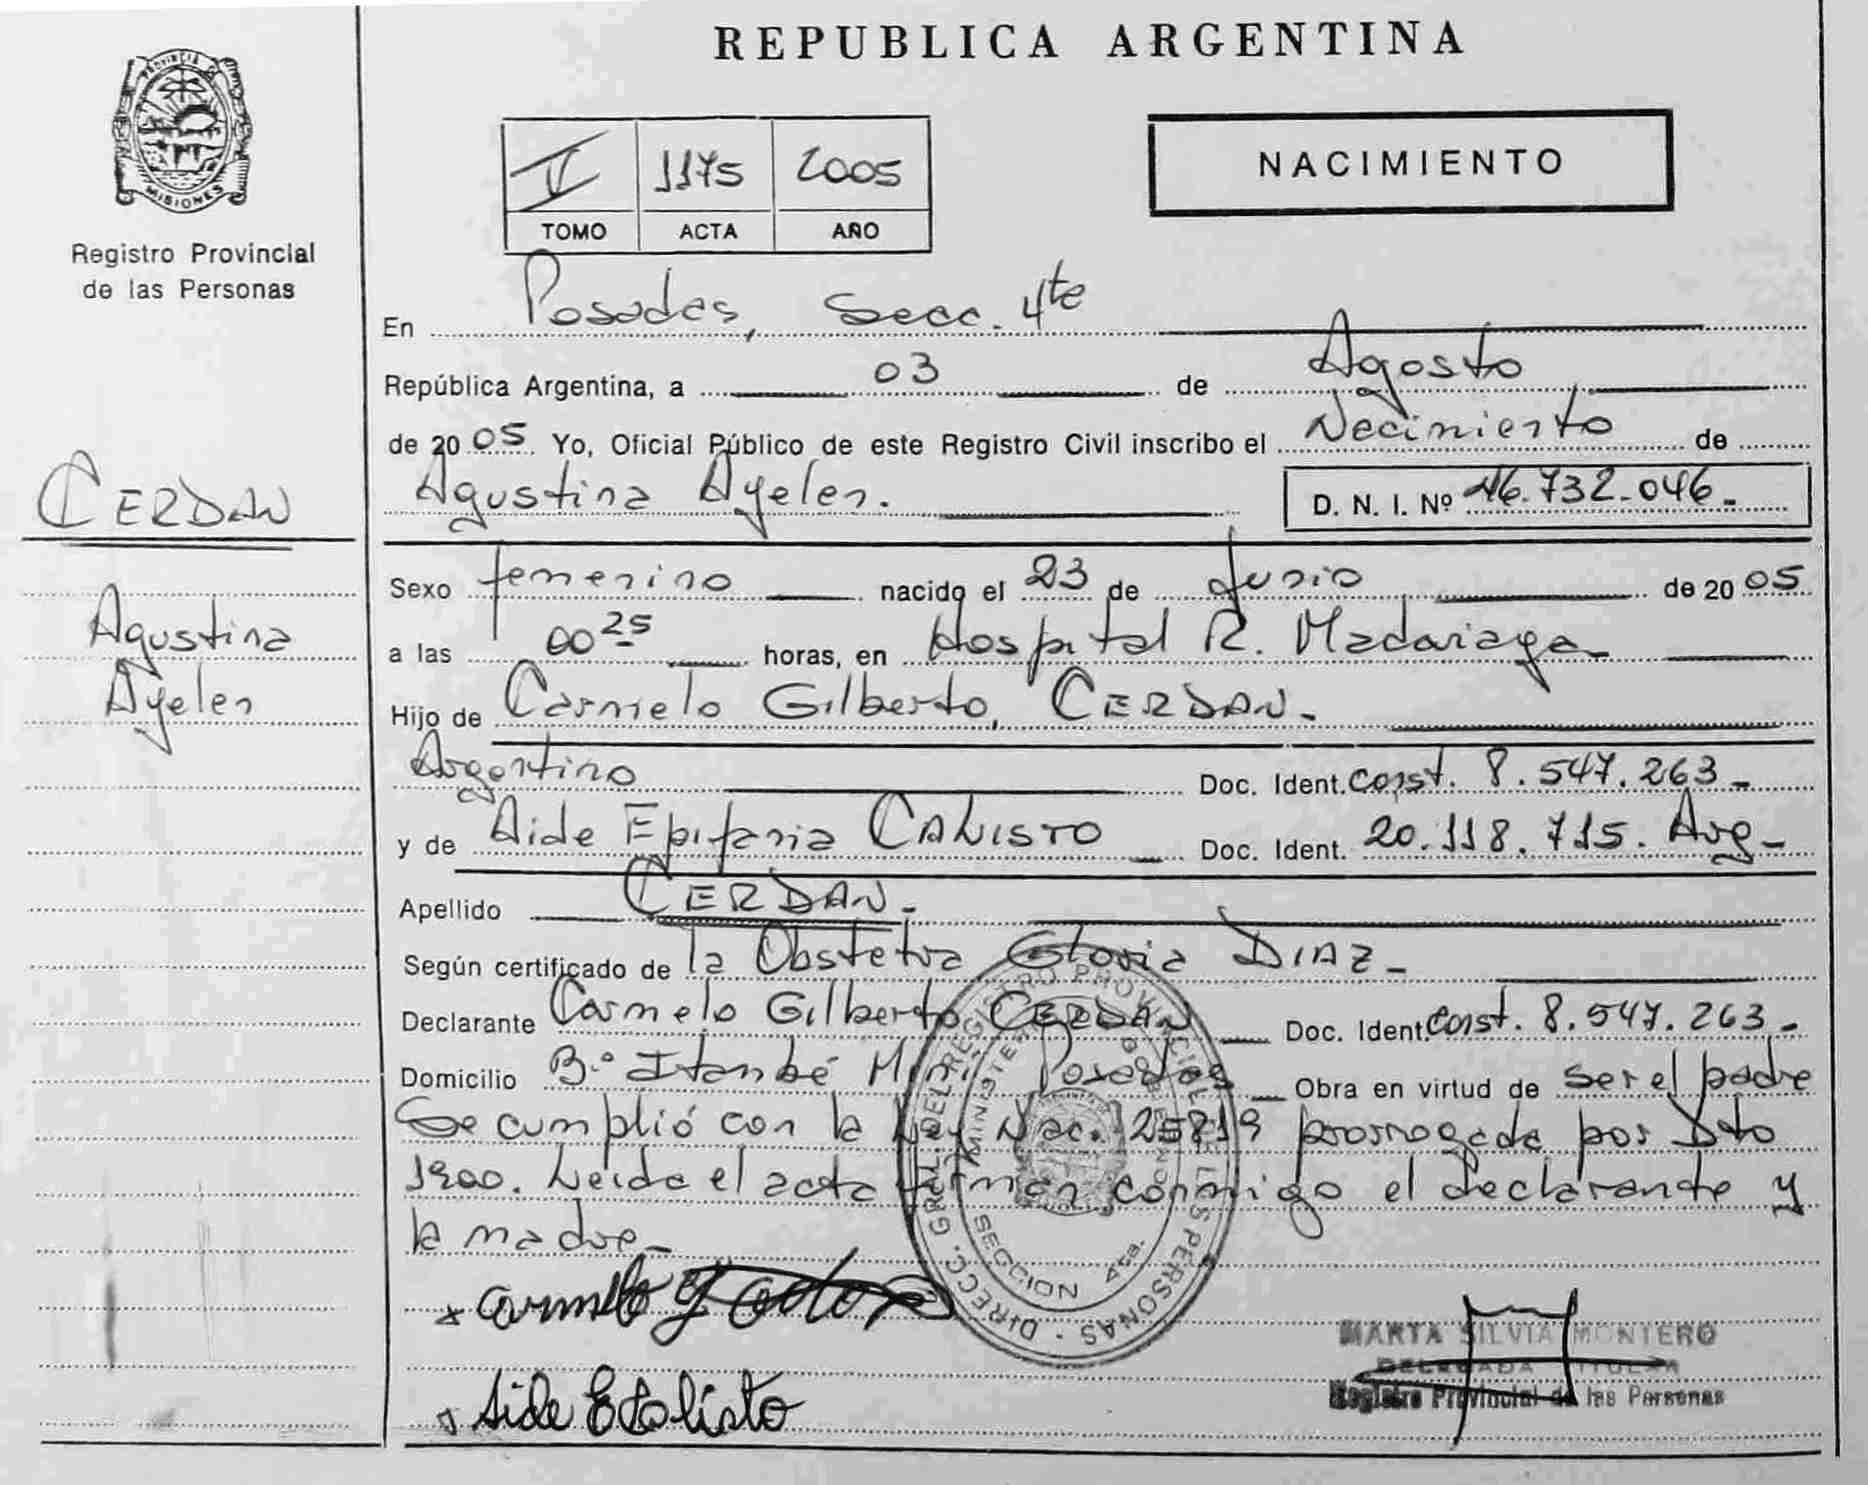 REPUBLICA ARGENTINA
PROVINCIA DE
MISIONES
Registro Provincial
de las Personas
II 1175 2005
TOMO ACTA AÑO
NACIMIENTO
En Posadas, Secc. 4ta
República Argentina, a 03 de Agosto
de 2005 Yo, Oficial Público de este Registro Civil inscribo el Nacimiento de
Agustina Ayelen. D. N. I. Nº 46.732.046.-
CERDAN
Agustina
Ayelen
Sexo femenino nacido el 23 de Junio de 2005
a las 00 25 horas, en Hospital R. Madariaga
Hijo de Carmelo Gilberto, CERDAN.-
Argentino Doc. Ident. const. 8.547.263-
y de Aide Epifania CALISTO Doc. Ident. 20.118.715. Arg-
Apellido CERDAN.-
Según certificado de la Obstetra Gloria DIAZ-
Declarante Carmelo Gilberto CERDAN Doc. Ident. const. 8.547.263-
Domicilio B.º Itambé Miní Posadas Obra en virtud de ser el padre
Se cumplió con la Ley Nac. 25819 prorrogada por Dto
1900. Leida el acta firman conmigo el declarante y
la madre-
DIRECC. GRAL. DEL REGISTRO PROVINCIAL DE LAS PERSONAS
MINISTERIO GOBIERNO
SECCION 4ta.
Aide E Calisto
MARTA SILVIA MONTERO
DELEGADA TITULAR
Registro Provincial de las Personas